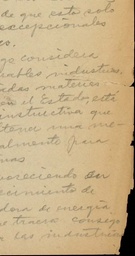 de que esta solo
excepcionales
o.
go considera
ables industrias,
adas materias
en el Estado, está
instructiva que
tener una me-
almente para
nas
pareciendo ser
ecimiento de
dora de energía
e traería consigo
las industrias